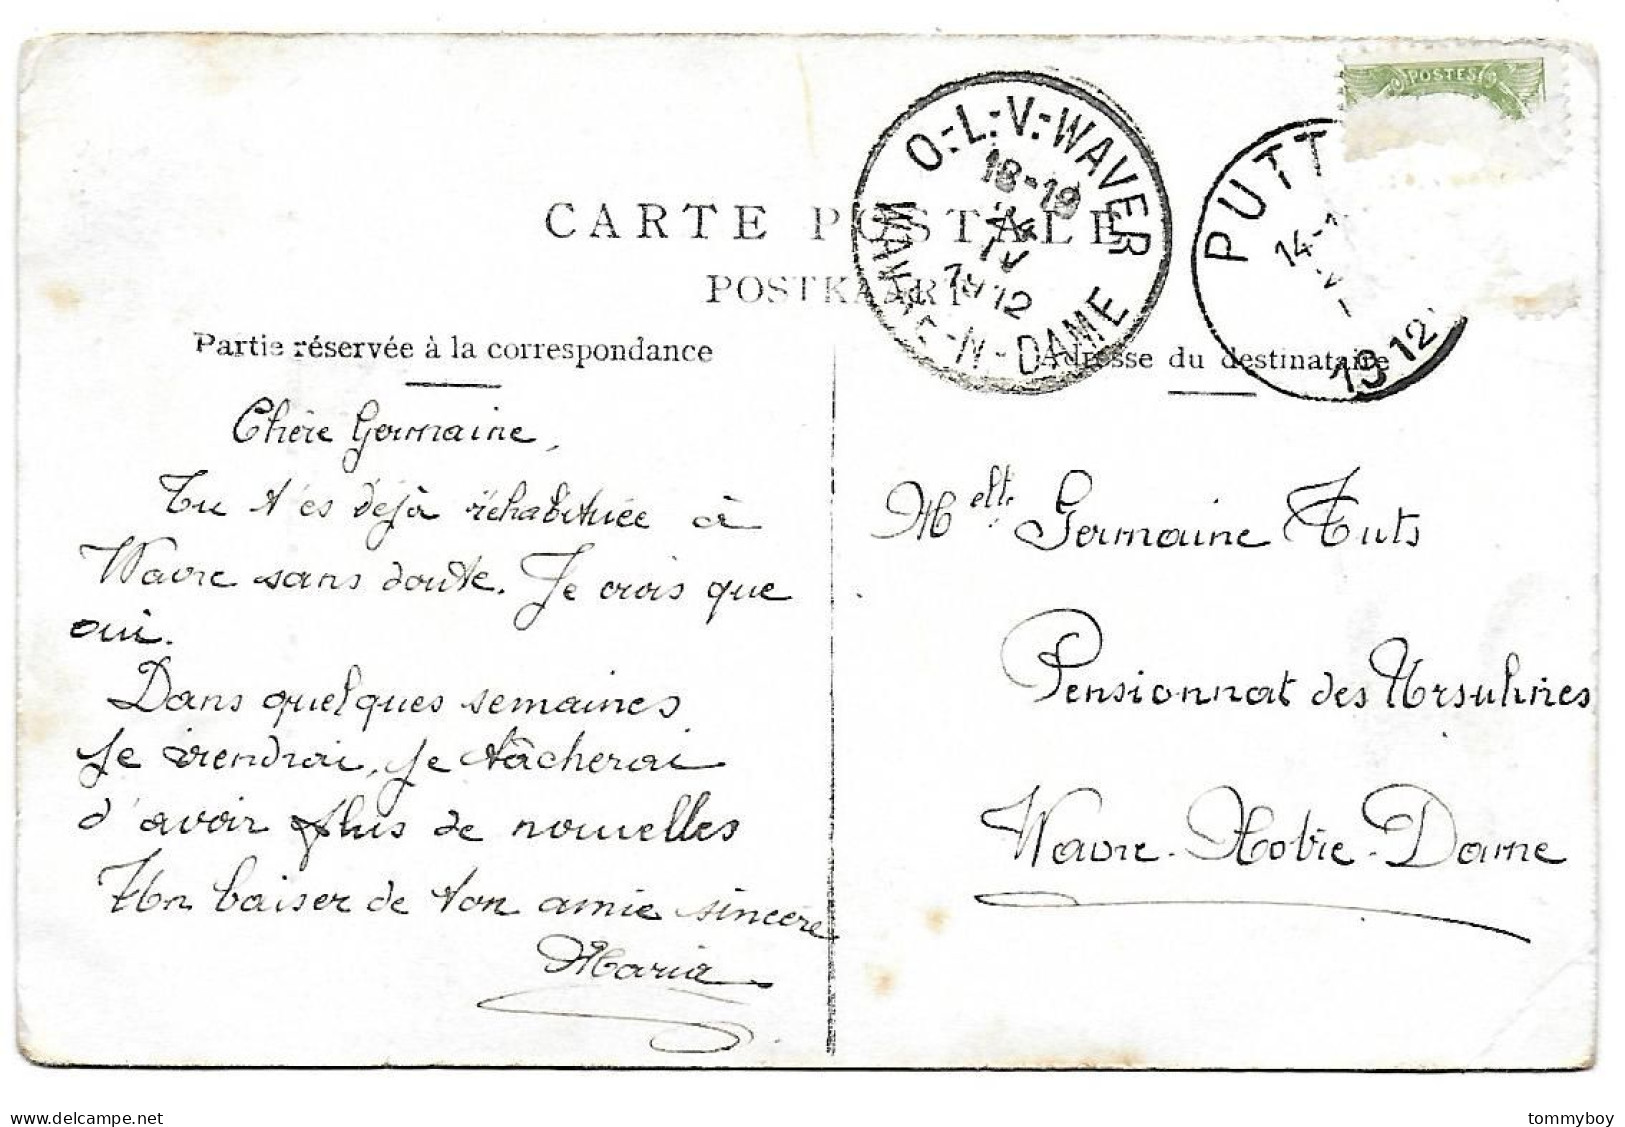 POSTES
O.-L.-V.-WAVER
18-19
IV
1912
WAVRE-N-DAME
PUTT
14-
1912
CARTE POSTALE
POSTKAART
Partie réservée à la correspondance
Adresse du destinataire
Chère Germaine,
Tu t'es déjà réhabituée à
Wavre sans doute. Je crois que
oui.
Dans quelques semaines
je viendrai, je tâcherai
d'avoir plus de nouvelles
Un baiser de ton amie sincère
Maria
Melle Germaine Tuts
Pensionnat des Ursulines
Wavre-Notre-Dame
www.delcampe.net
tommyboy